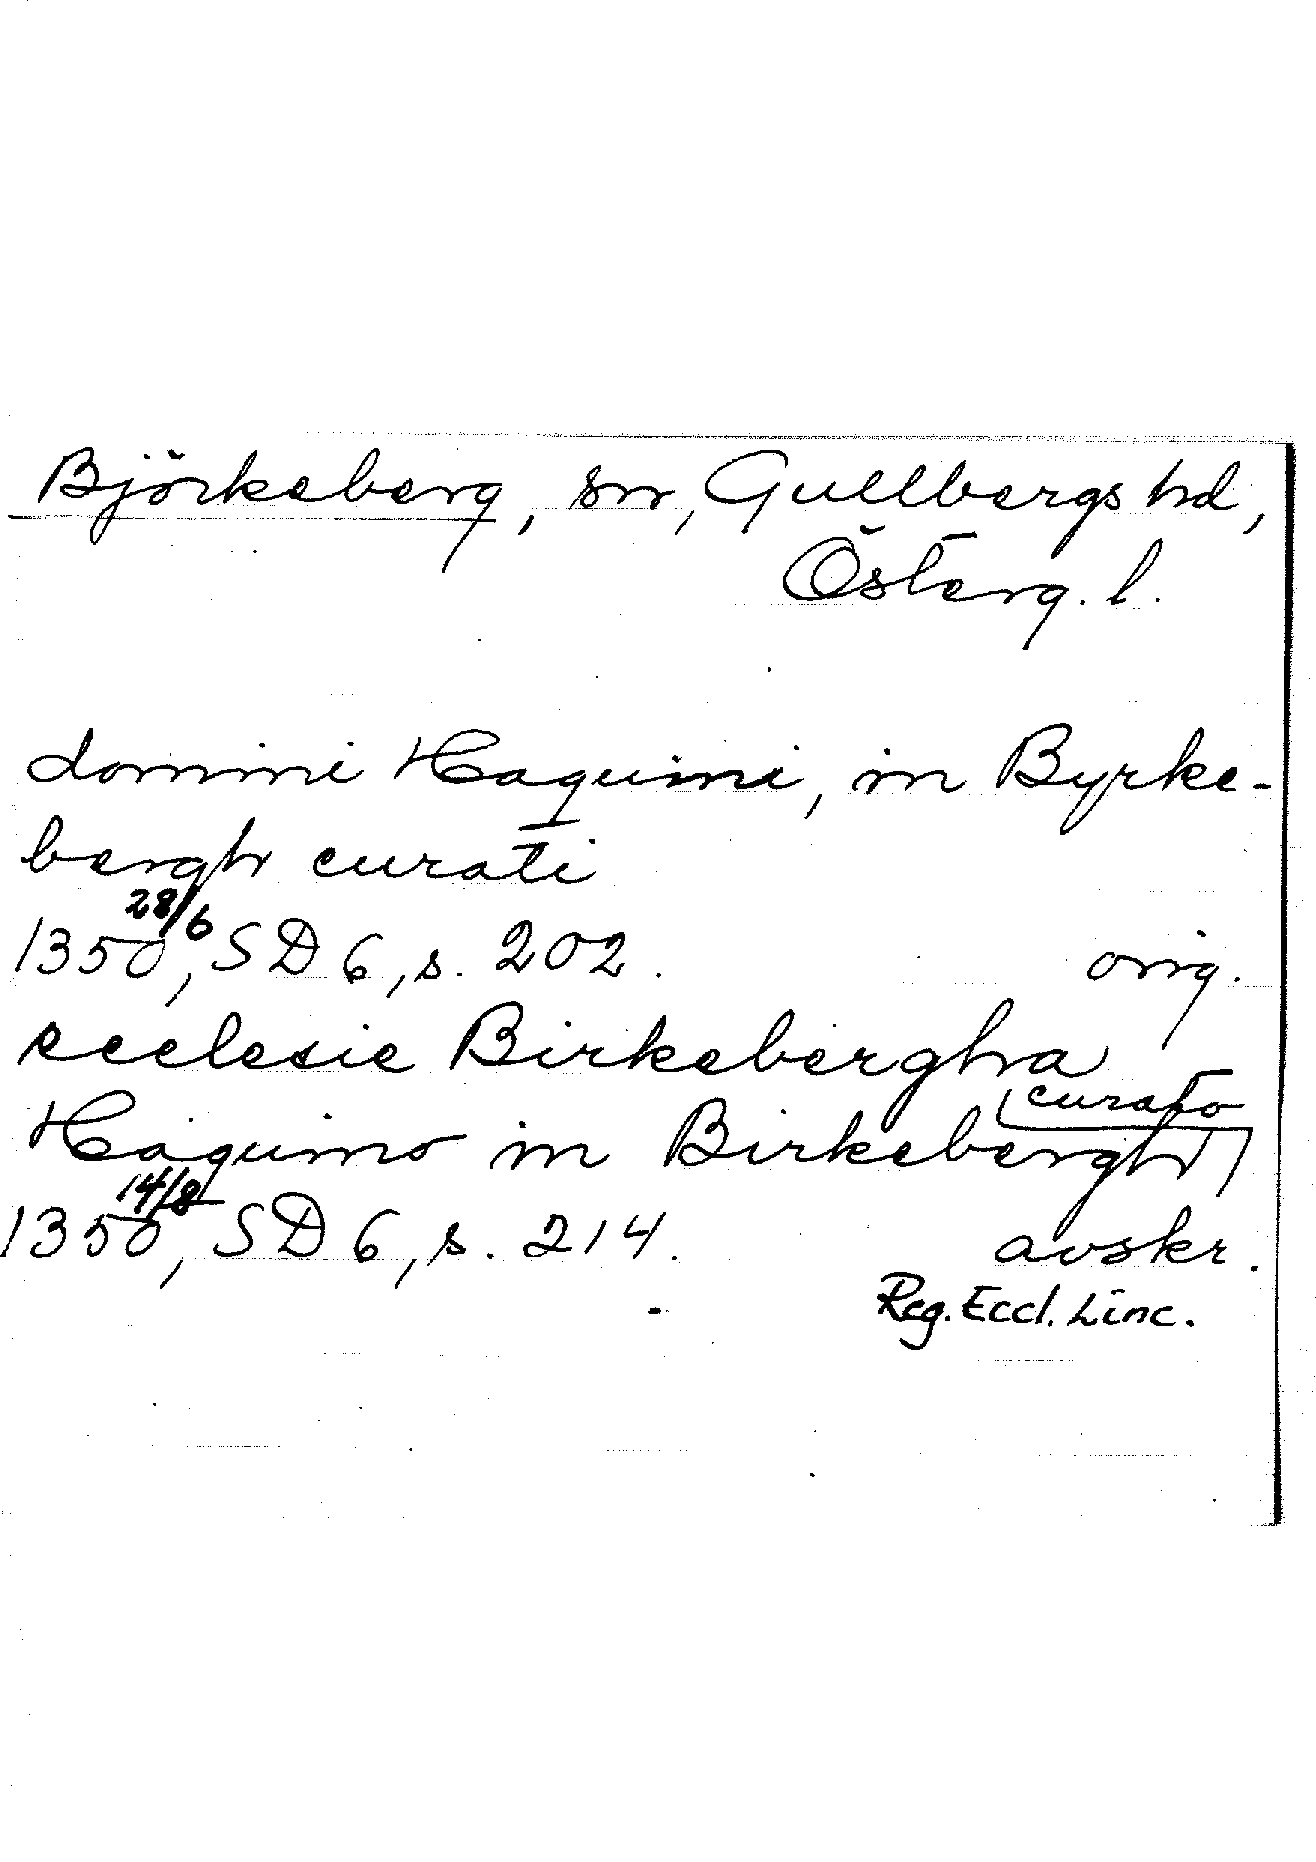 Björkeberg, sn, Gullbergs hd,
Österg. l.
domini Haquini, in Byrke-
bergh curati
1350 28/6, SD 6, s. 202. orig.
ecclesie Birkebergha
curato
Haquino in Birkebergh
1350 14/8, SD 6, s. 214. avskr.
Reg. Eccl. Linc.